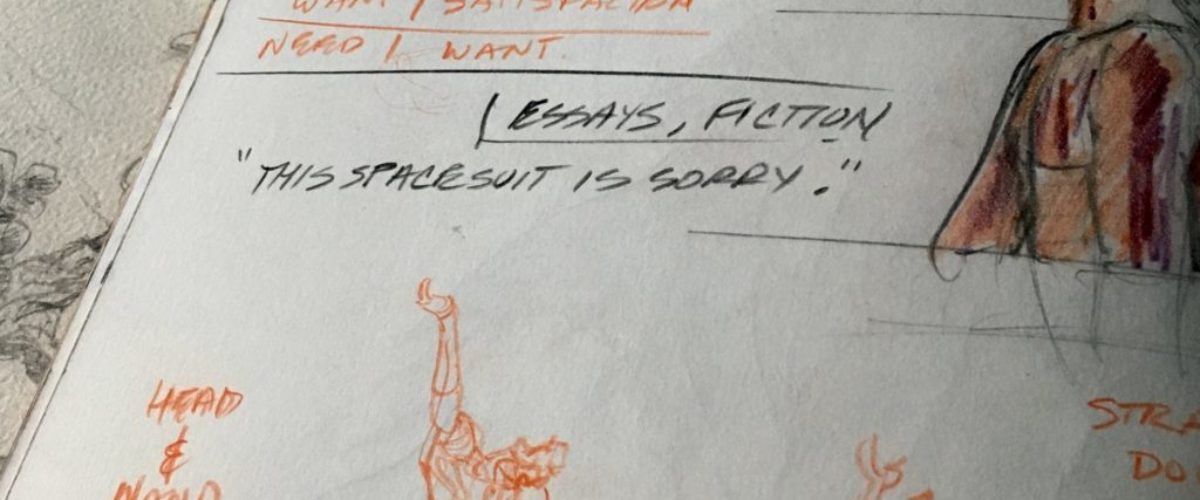 WANT / SATISFACTION
NEED / WANT.
ESSAYS, FICTION
"THIS SPACESUIT IS SORRY."
HEAD
&
DO